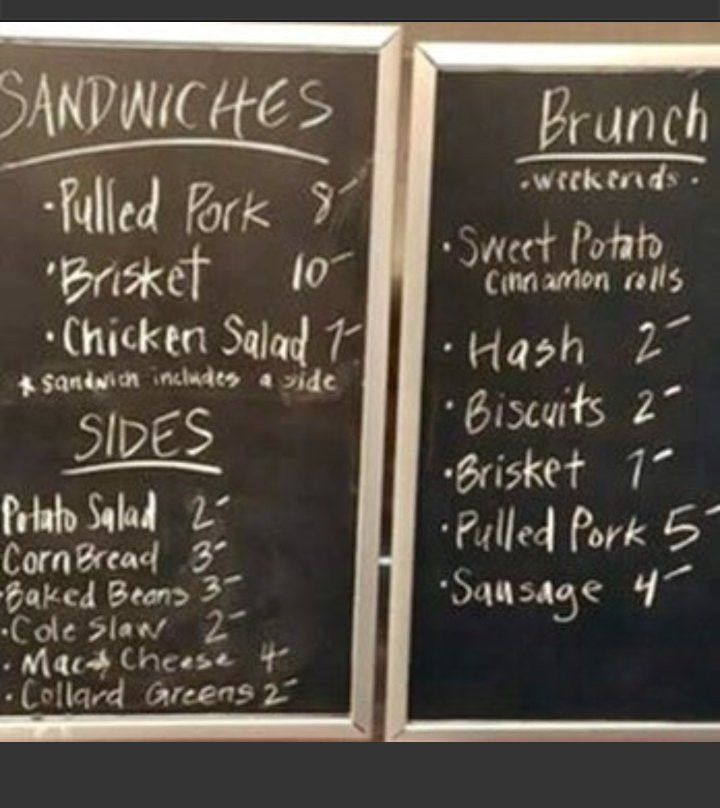 SANDWICHES
·Pulled Pork 8-
·Brisket 10-
·Chicken Salad 7-
* sandwich includes a side
SIDES
Potato Salad 2-
Corn Bread 3-
·Baked Beans 3-
·Cole Slaw 2-
·Mac & Cheese 4-
·Collard Greens 2-
Brunch
·weekends·
·Sweet Potato
cinnamon rolls
·Hash 2-
·Biscuits 2-
·Brisket 7-
·Pulled Pork 5-
·Sausage 4-